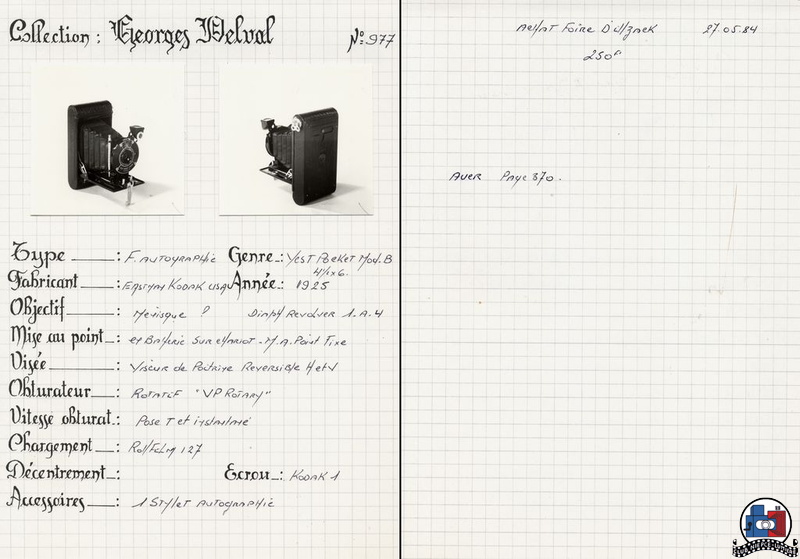 Collection : Georges Delval N° 977
Type : F. AUTOGRAPHIC Genre : VEST POCKET Mod. B
4½x6.
Fabricant : EASTMAN KODAK USA Année : 1925
Objectif : Ménisque ? Diaph Revolver 1.A.4
Mise au point : M.A. Point Fixe
Visée : Viseur de Poitrine Reversible H et V
Obturateur : ROTATIF "VP ROTARY"
Vitesse obturat. : Pose T et instantané
Chargement : Roll Film 127
Décentrement : Ecrou : KODAK 1
Accessoires : 1 Stylet AUTOGRAPHIC
Achat Foire 27.05.84
250F
AUER Page 370.